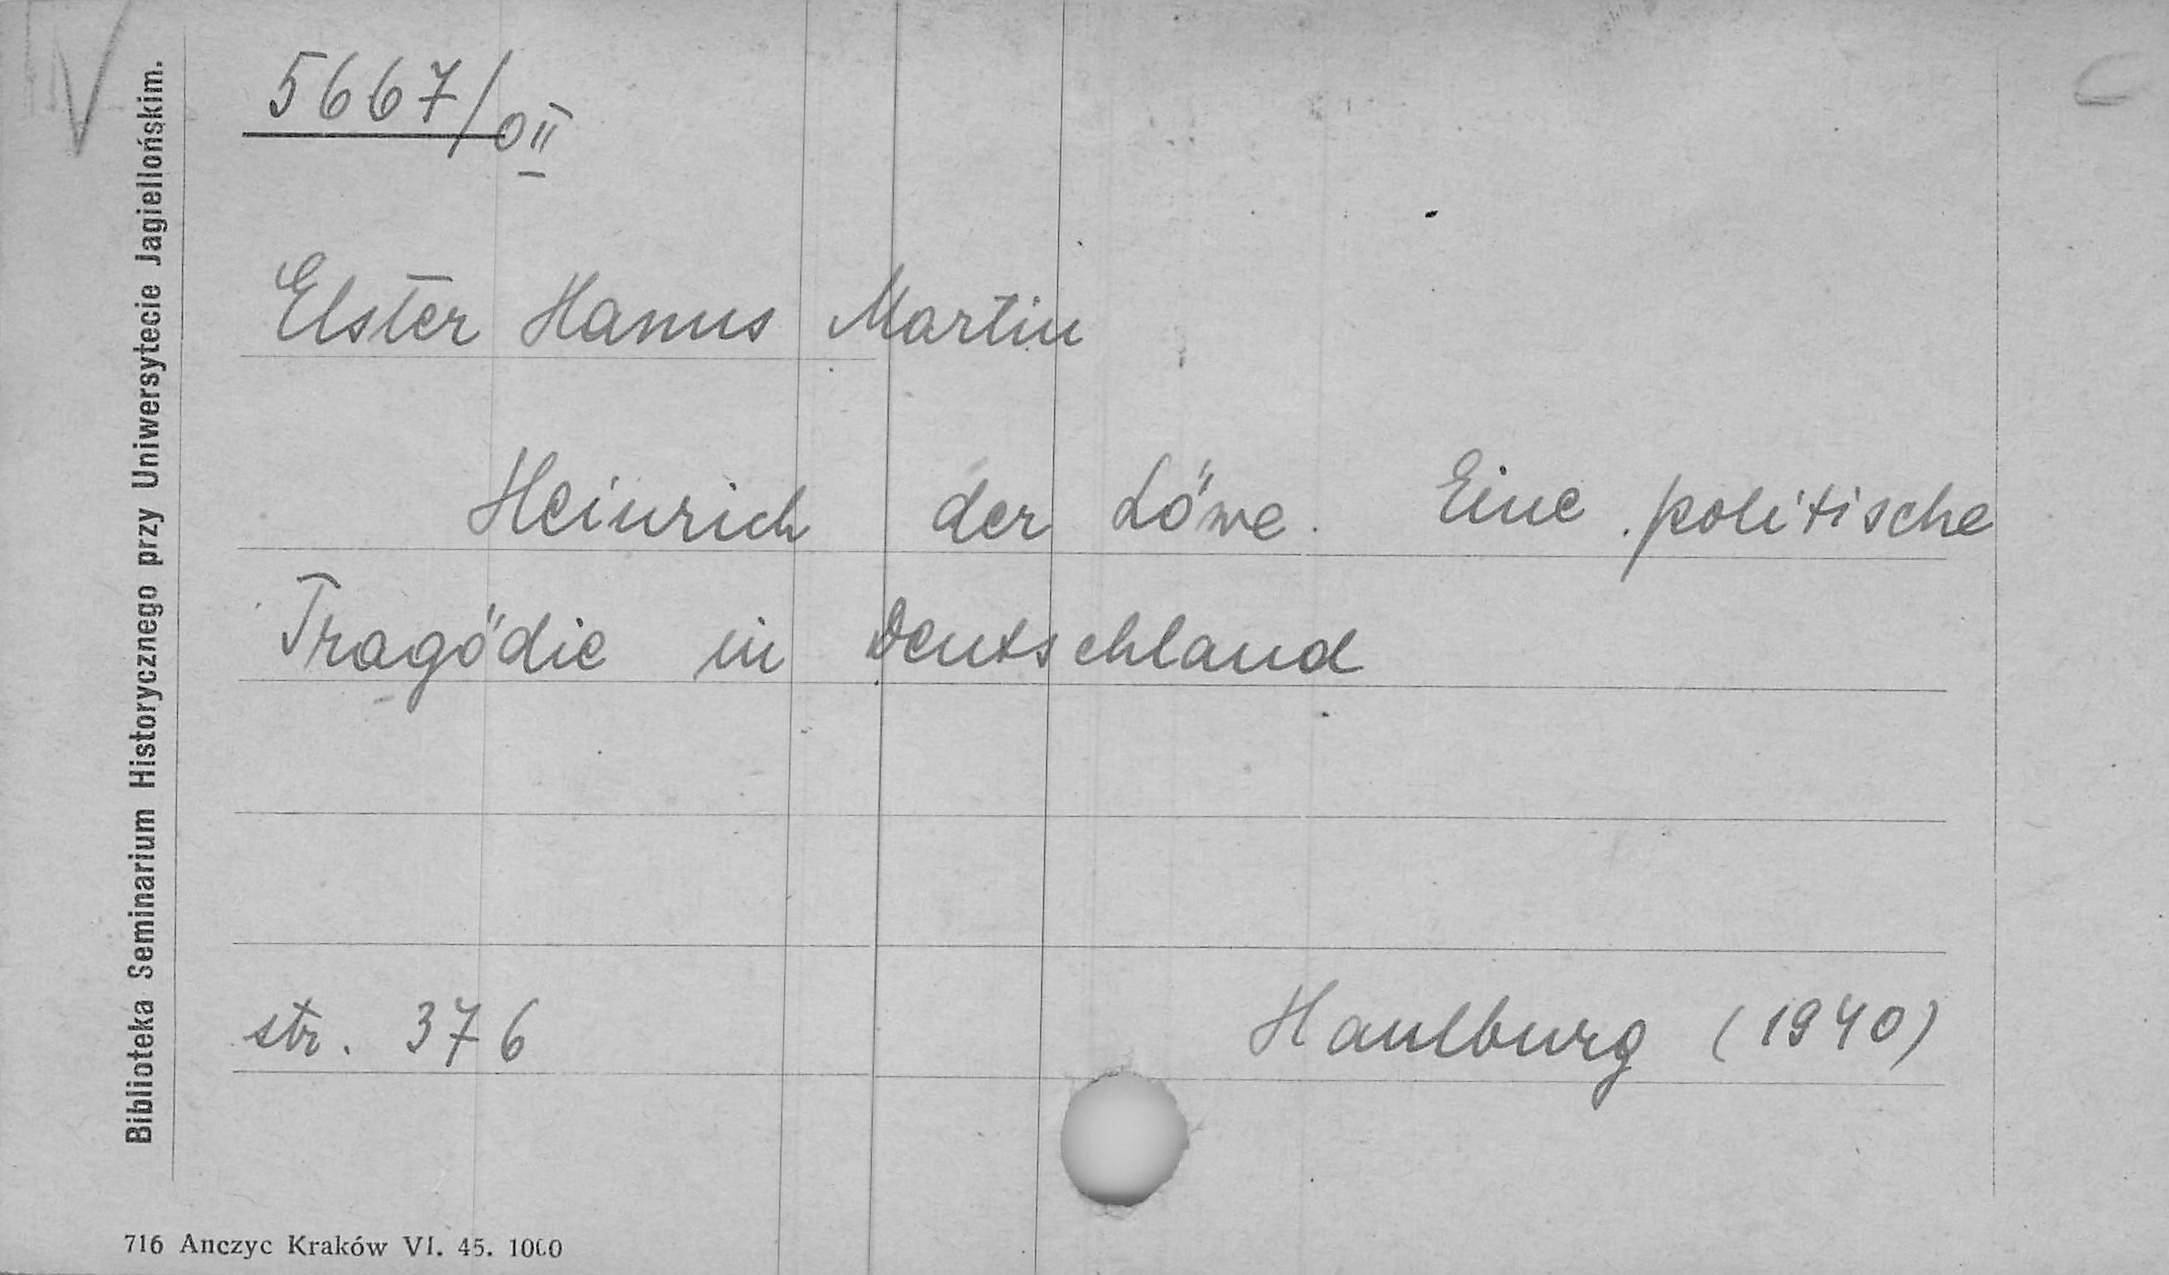 5667/OII
Elster Hanns Martin
Heinrich der Löwe. Eine politische
Tragödie in Deutschland
str. 376
Hamburg (1940)
Biblioteka Seminarium Historycznego przy Uniwersytecie Jagiellońskim.
716 Anczyc Kraków VI. 45. 1000